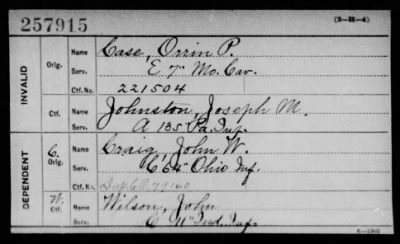 257915
(3-H-4)
INVALID
Orig.
Name Case, Orrin P.
Serv. E 7" Mo. Cav.
Ctf. No. 221504
Ctf.
Name Johnston, Joseph M.
Serv. A 135 Pa. Inf.
DEPENDENT
C. Orig.
Name Craig, John W.
Serv. C 54" Ohio Inf.
Ctf. No. 79160
W. Ctf.
Name Wilson, John
Serv. C 11" Ind. Inf.